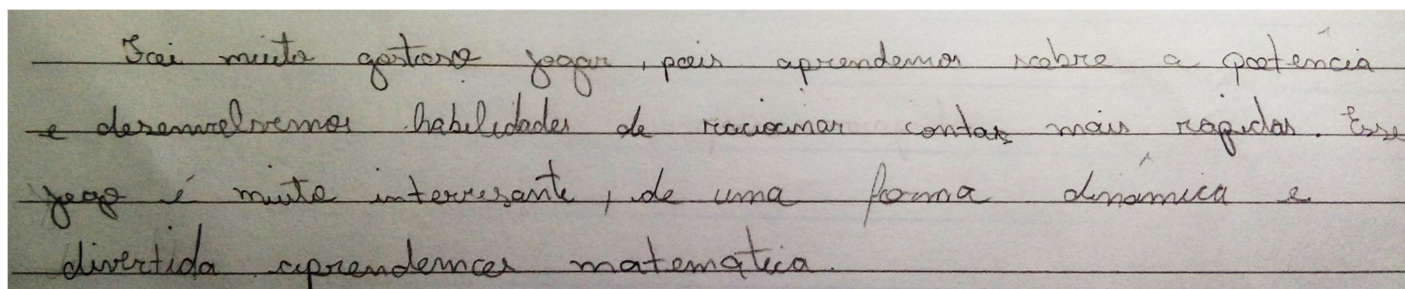 Foi muito gostoso jogar, pois aprendemos sobre a potência
e desenvolvemos habilidades de raciocinar contas mais rápidas. Esse
jogo é muito interresante, de uma forma dinâmica e
divertida aprendemos matemática.